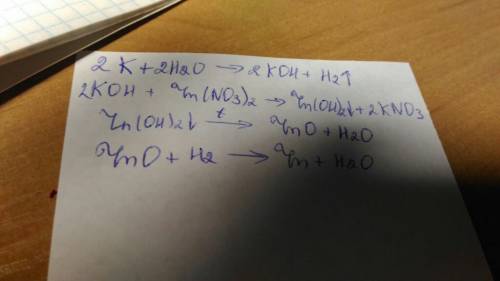 2K + 2H2O → 2KOH + H2↑
2KOH + Zn(NO3)2 → Zn(OH)2↓ + 2KNO3
Zn(OH)2↓ t→ ZnO + H2O
ZnO + H2 → Zn + H2O